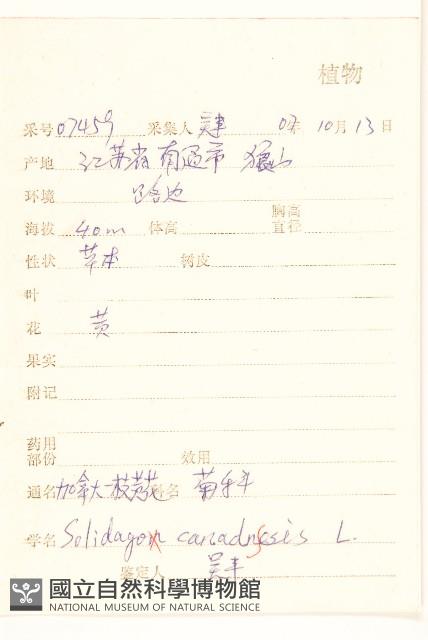 植物
采号 07459 采集人 吴丰 07年 10月13日
产地 江苏省南通市 狼山
环境 路边
海拔 40m 体高 胸高直径
性状 草本 树皮
叶
花 黄
果实
附记
药用部份 效用
通名 加拿大一枝黄花 科名 菊科
学名 Solidago canadensis L.
鉴定人 吴丰
國立自然科學博物館
NATIONAL MUSEUM OF NATURAL SCIENCE